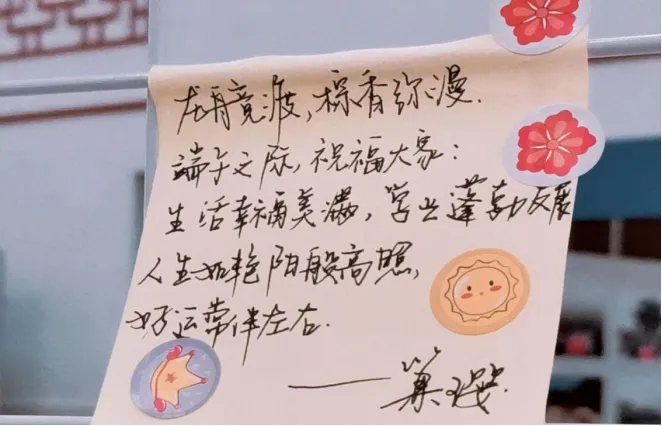 龙舟竞渡，棕香弥漫．
端午之际，祝福大家：
生活幸福美满，蓬勃发展
人生如艳阳般高照，
好运常伴左右．